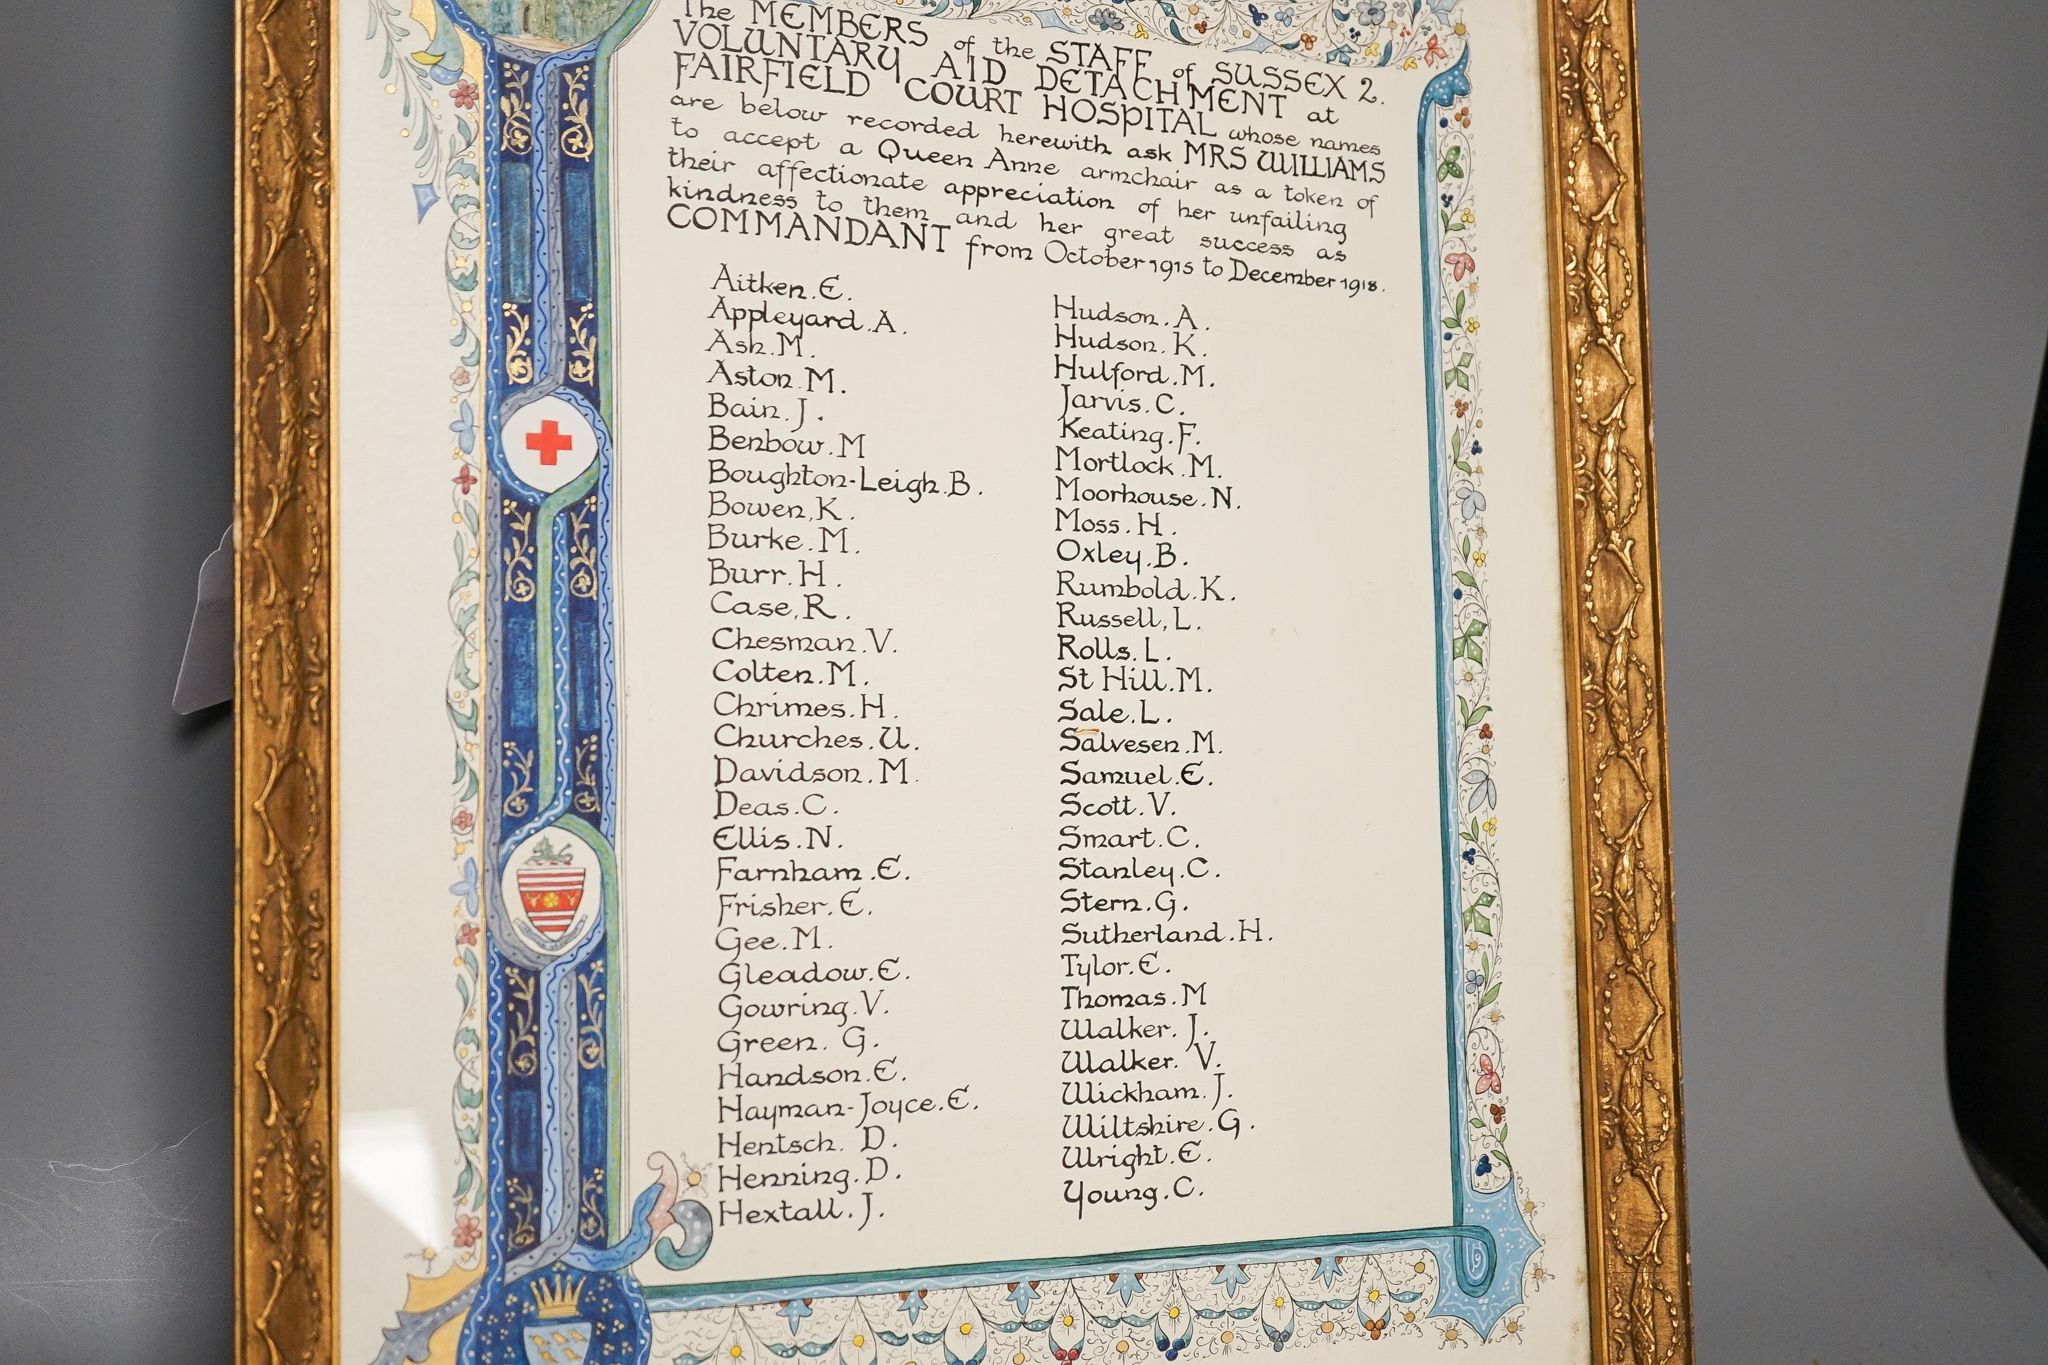 The MEMBERS of the STAFF of SUSSEX 2.
VOLUNTARY AID DETACHMENT at
FAIRFIELD COURT HOSPITAL whose names
are below recorded herewith ask MRS WILLIAMS
to accept a Queen Anne armchair as a token of
their affectionate appreciation of her unfailing
kindness to them and her great success as
COMMANDANT from October 1915 to December 1918.
Aitken. E.
Appleyard. A.
Ash. M.
Aston. M.
Bain. J.
Benbow. M
Boughton-Leigh. B.
Bowen, K.
Burke. M.
Burr. H.
Case, R.
Chesman. V.
Colten. M.
Chrimes. H.
Churches. U.
Davidson. M.
Deas. C.
Ellis. N.
Farnham. E.
Frisher. E.
Gee. M.
Gleadow. E.
Gowring. V.
Green. G.
Handson. E.
Hayman-Joyce. E.
Hentsch. D.
Henning. D.
Hextall. J.
Hudson. A.
Hudson. K.
Hulford. M.
Jarvis. C.
Keating. F.
Mortlock. M.
Moorhouse. N.
Moss. H.
Oxley. B.
Rumbold. K.
Russell, L.
Rolls. L.
St Hill. M.
Sale. L.
Salvesen. M.
Samuel. E.
Scott. V.
Smart. C.
Stanley. C.
Stern. G.
Sutherland. H.
Tylor. E.
Thomas. M
Walker. J.
Walker. V.
Wickham. J.
Wiltshire. G.
Wright. E.
Young. C.